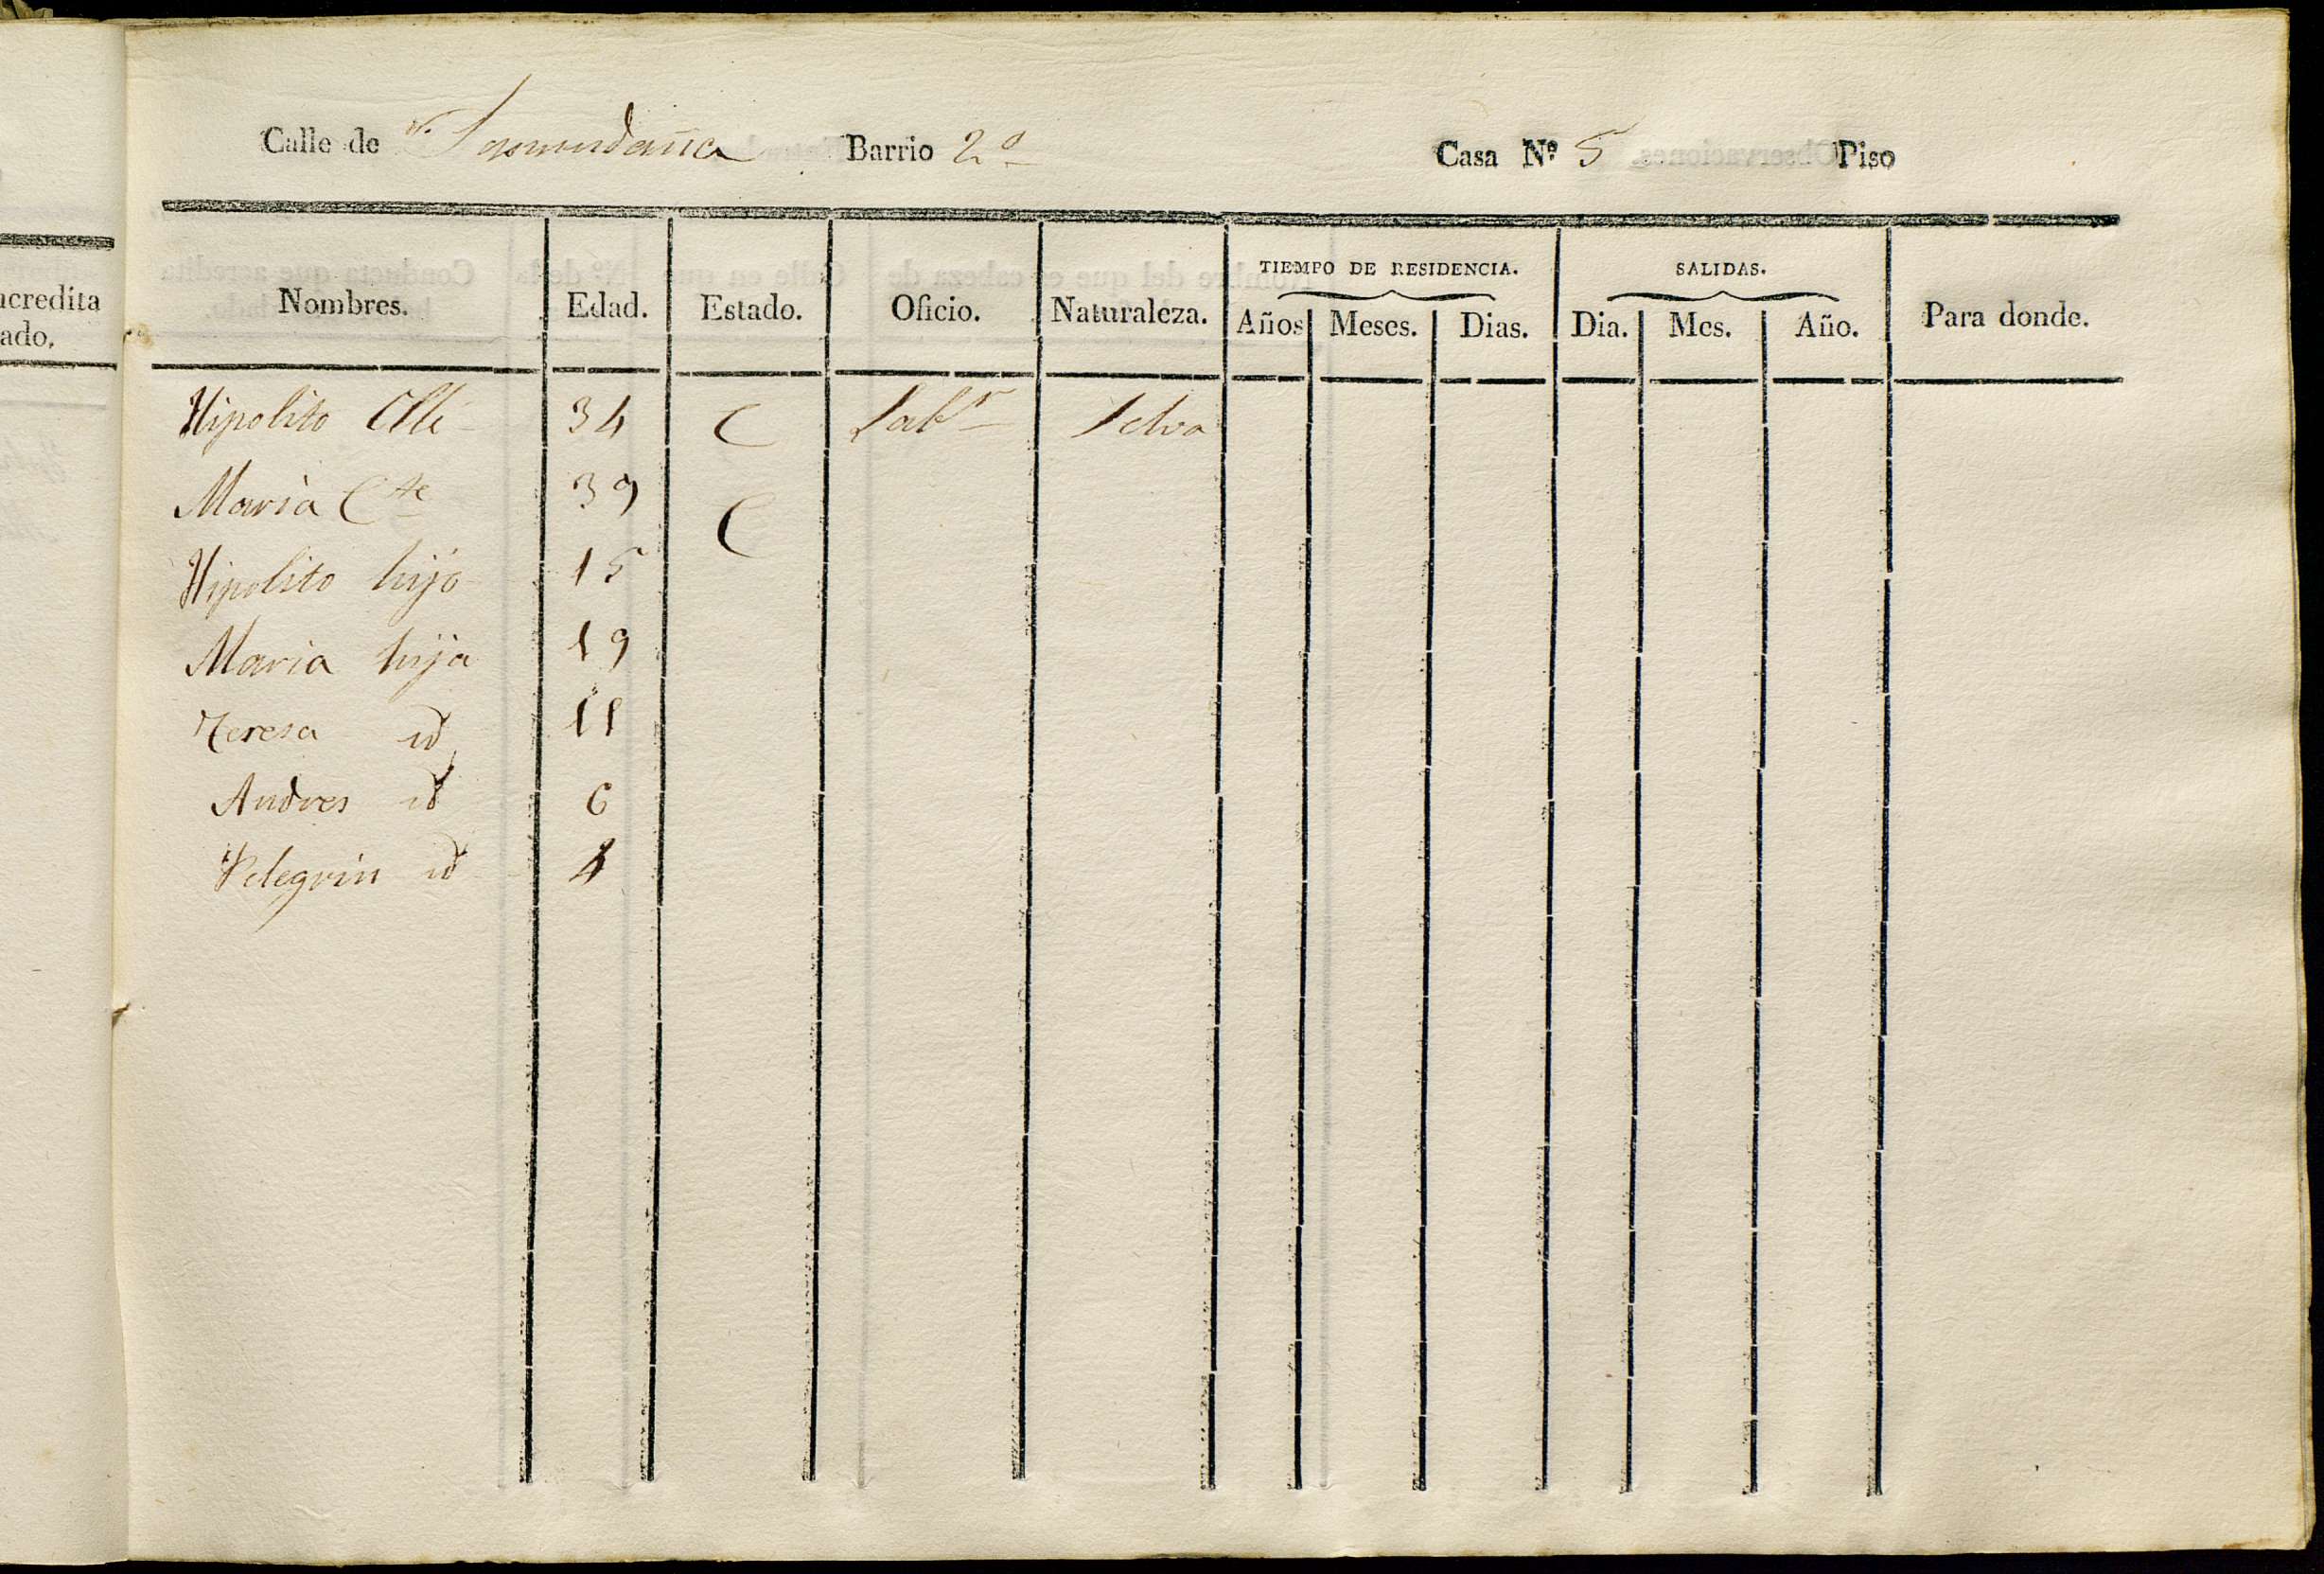 Calle de Barrio 2º Casa Nº 5 Piso
acredita
ado.
Nombres. Edad. Estado. Oficio. Naturaleza. TIEMPO DE RESIDENCIA. SALIDAS. Para donde.
Años Meses. Dias. Dia. Mes. Año.
Hipolito 34 C Labr Selva
Maria Cte 39 C
Hipolito hijo 15
Maria hija 19
Teresa id 11
Andres id 6
Pelegrin id 4